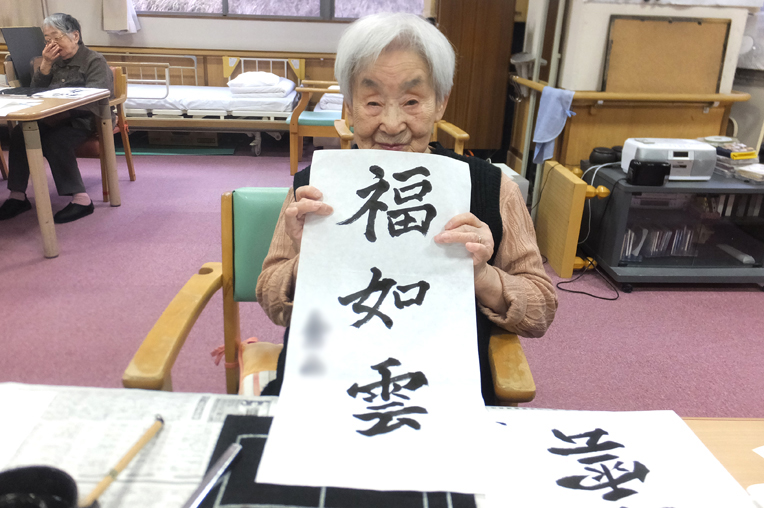 福如雲
雲